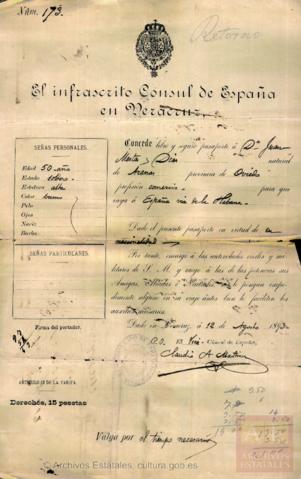 Núm. 173.
Retorno
El infrascrito Consul de España
en Veracruz,
SEÑAS PERSONALES.
Edad 50 años
Estado soltero
Estatura alta
Color bueno
Pelo
Ojos
Nariz
Barba
SEÑAS PARTICULARES.
Firma del portador.
ARTICULO DE LA TARIFA.
Derechos, 15 pesetas
Concede libre y seguro pasaporte á Dn. Juan
Díaz natural
de provincia de Oviedo
profesion comercio para que
vaya á España via de la Habana.
Dado el presente pasaporte en virtud de su
nacionalidad
Por tanto, encargo á las autoridades civiles y mi-
litares de S. M., y ruego á las de las potencias sus
Amigas, Aliadas ó Neutrales no le pongan impe-
dimento alguno en su viaje ántes bien le faciliten los
auxilios necesarios.
Dado en Veracruz, á 12 de Agosto 1893
Cónsul de España,
Claudio A. Martinez
Valga por el tiempo necesario
© Archivos Estatales, cultura.gob.es
ARCHIVOS
ESTATALES